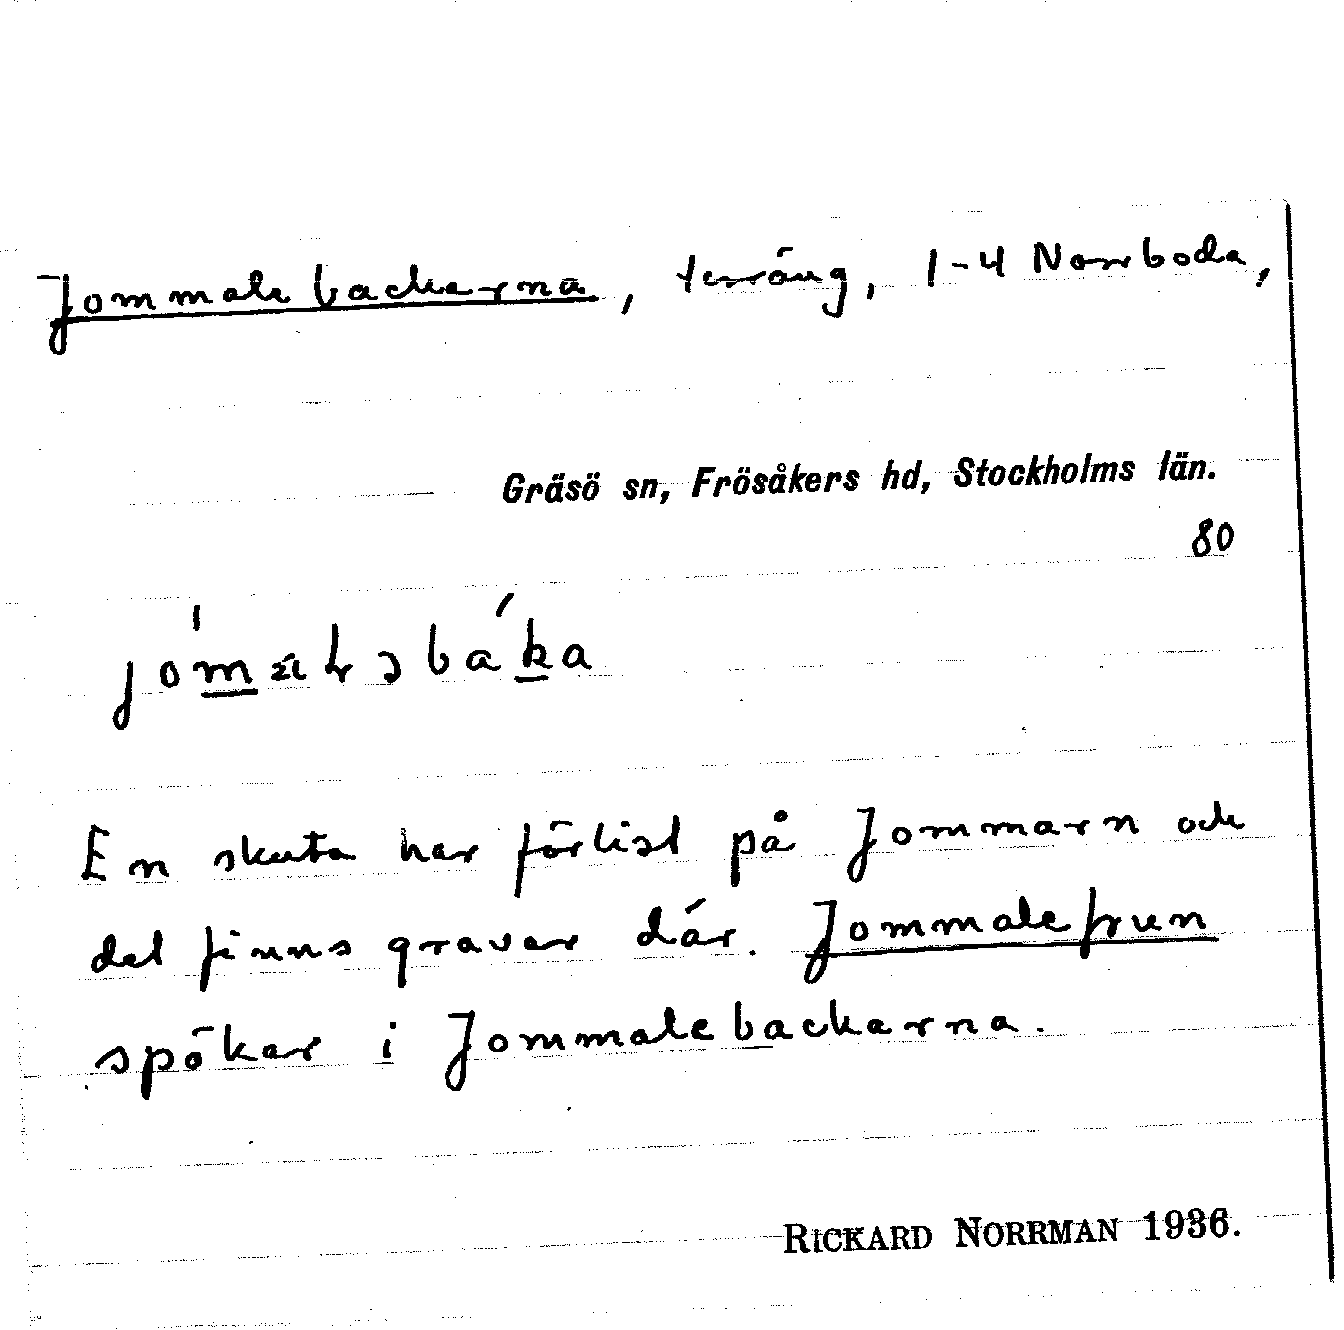 Jommalebackarna, terräng, 1-4 Norrboda,
Gräsö sn, Frösåkers hd, Stockholms län.
80
En skuta har förlist på Jommarn och
det finns gravar där. Jommalefrun
spökar i Jommalebackarna.
RICKARD NORRMAN 1936.